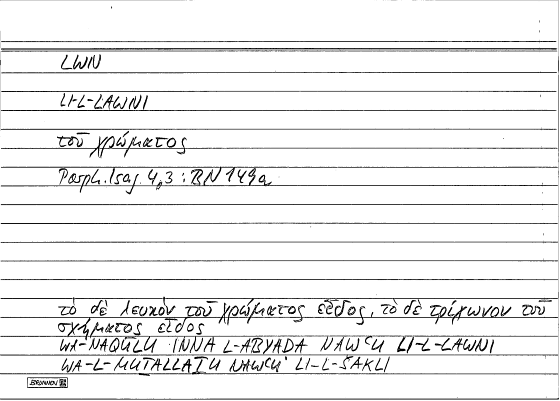 LWN
LI-L-LAWNI
τοῦ χρώματος
Porph. Isag. 4,3 : BN 149a
τὸ δὲ λευκὸν τοῦ χρώματος εἶδος, τὸ δὲ τρίγωνον τοῦ
σχήματος εἶδος
WA-NAQŪLU INNA L-ABYAḌA NAWʿU LI-L-LAWNI
WA-L-MUṮALLAṮU NAWʿU LI-L-ŠAKLI
BRUNNEN